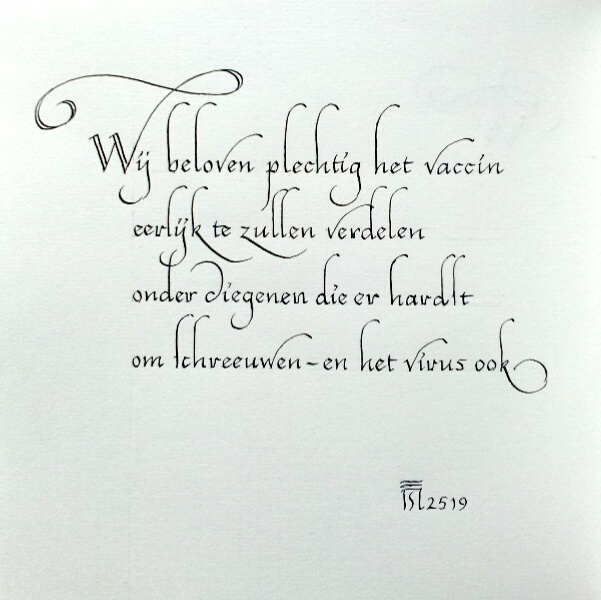 Wij beloven plechtig het vaccin
eerlijk te zullen verdelen
onder diegenen die er hardſt
om ſchreeuwen – en het virus ook
2519